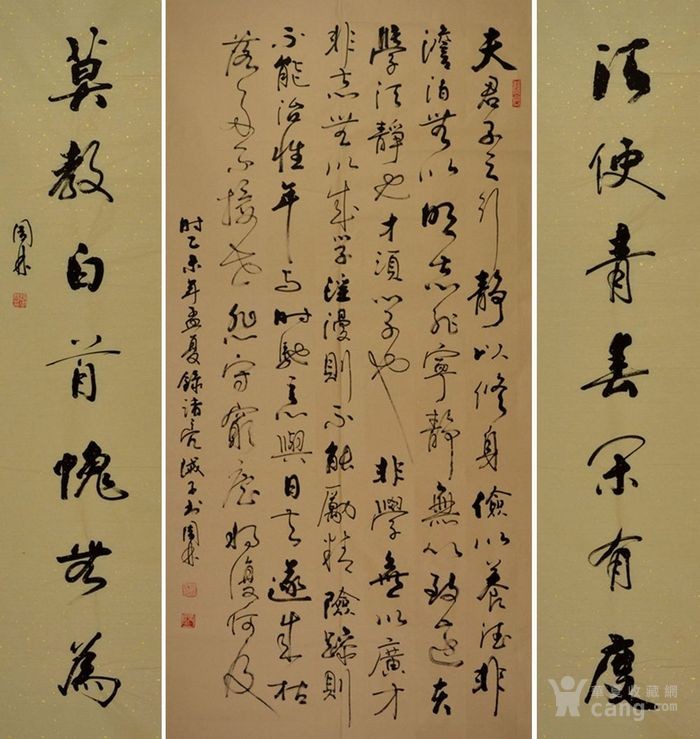 便青春有度
夫君子之行靜以修身儉以養德非
澹泊無以明志非寧靜無以致遠夫
學须靜也才須學也非學無以廣才
非志無以成学淫漫則不能勵精險躁則
不能治性年与时馳意與日去遂成枯
落多不接世悲守窮廬将復何及
时乙未年孟夏錄诸亮诫子书周
莫教白首愧無為
周
華夏收藏網
cang.com